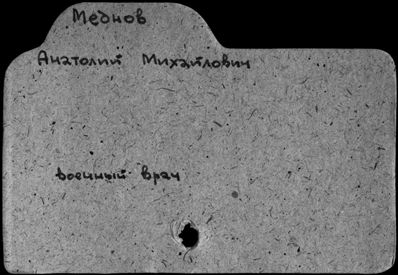 Меднов
Анатолий Михайлович
военный врач